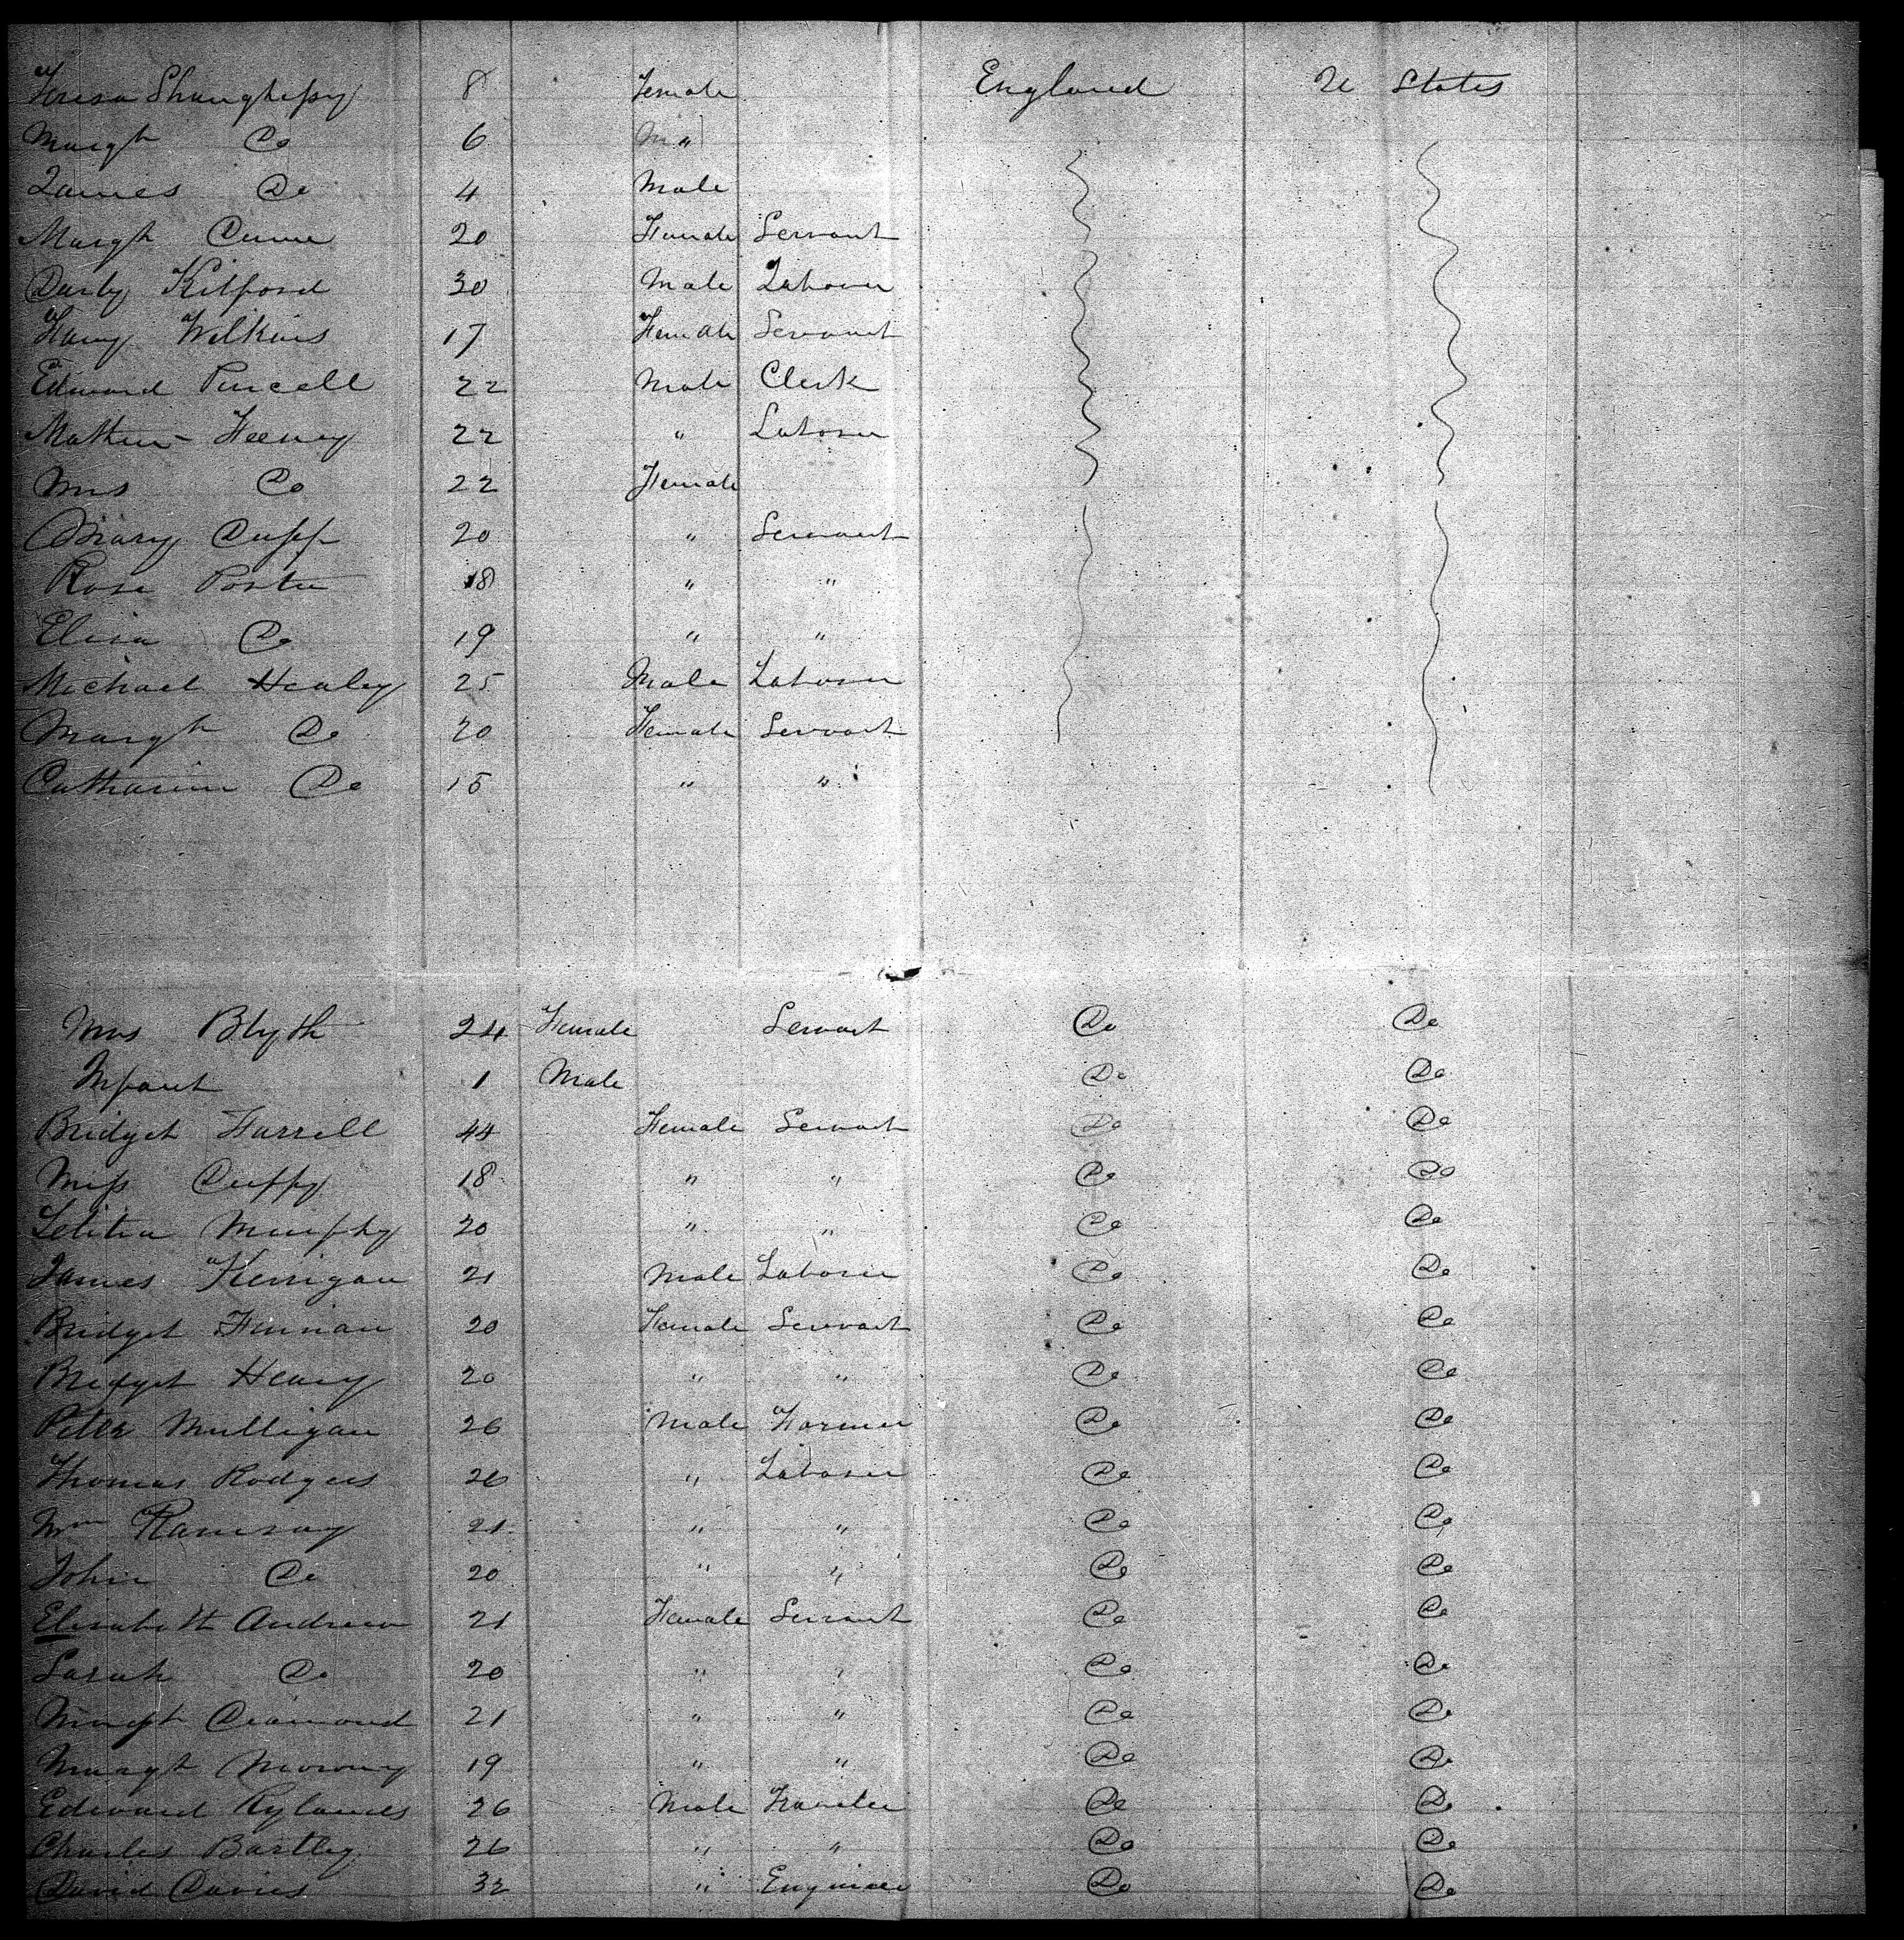 Teresa Shaughnessy 8 Female England U States
Margt Do 6 "
James Do 4 Male
Margt Dunne 20 Female Servant
Darby Kilford 30 Male Laborer
Fanny Wilkins 17 Female Servant
Edward Purcell 22 Male Clerk
Mathew Feeney 22 " Laborer
Mrs Do 22 Female
Mary Duff 20 " Servant
Rose Porter 18 " "
Eliza Do 19 " "
Michael Healey 25 Male Laborer
Margt Do 20 Female Servant
Catharine Do 15 " "
Mrs Blyth 24 Female Servant Do Do
Infant 1 Male Do Do
Bridget Farrell 44 Female Servant Do Do
Miss Duffy 18 " " Do Do
Letitia Murphy 20 " " Do Do
James Kerrigan 21 Male Laborer Do Do
Bridget Finnan 20 Female Servant Do Do
Bridget Heavy 20 " " Do Do
Peter Mulligan 26 Male Farmer Do Do
Thomas Rodgers 26 " Laborer Do Do
Wm Ramsay 21 " " Do Do
John Do 20 " " Do Do
Elizabeth Andrew 21 Female Servant Do Do
Sarah Do 20 " " Do Do
Margt Diamond 21 " " Do Do
Margt 19 " " Do Do
Edward Rylands 26 Male Traveler Do Do
Charles Bartley 26 " " Do Do
David Davies 32 " Engineer Do Do